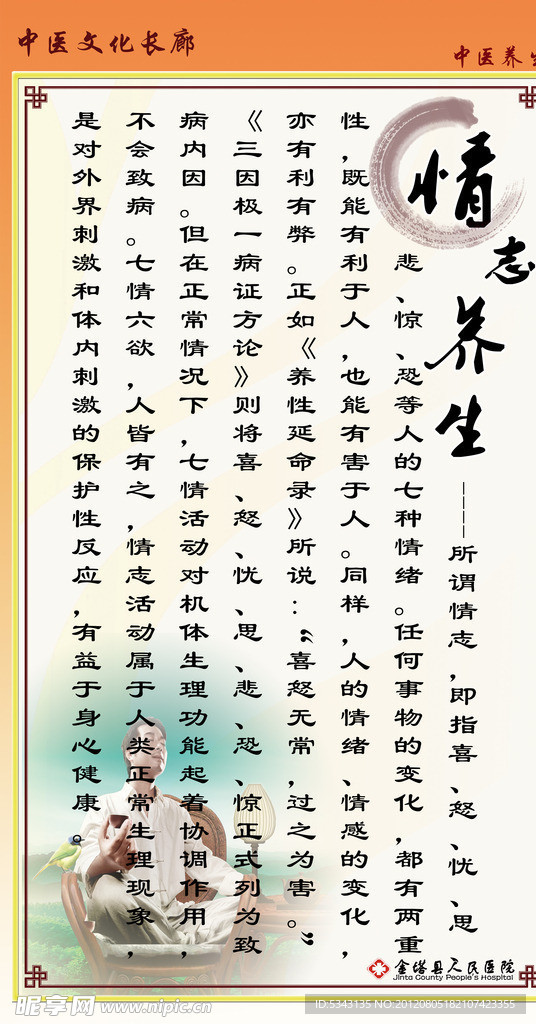 中医文化长廊
中医养生
情志养生
———所谓情志，即指喜、怒、忧、思
悲、惊、恐等人的七种情绪。任何事物的变化，都有两重
性，既能有利于人，也能有害于人。同样，人的情绪、情感的变化，
亦有利有弊。正如《养性延命录》所说：“喜怒无常，过之为害。”
《三因极一病证方论》则将喜、怒、忧、思、悲、恐、惊正式列为致
病内因。但在正常情况下，七情活动对机体生理功能起着协调作用，
不会致病。七情六欲，人皆有之，情志活动属于人类正常生理现象，
是对外界刺激和体内刺激的保护性反应，有益于身心健康。
金塔县人民医院
Jinta County People's Hospital
昵享网 www.nipic.cn
ID:5343135 NO:20120805182107423355